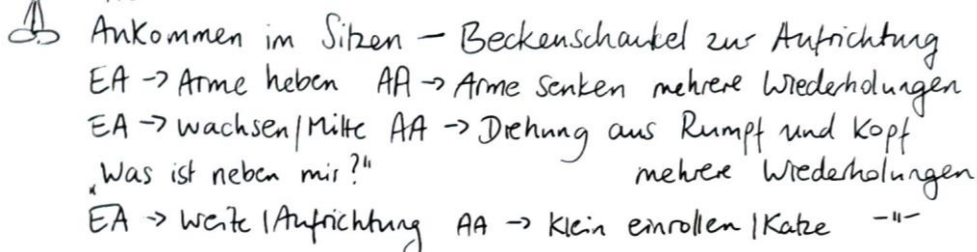 Ankommen im Sitzen – Beckenschaukel zur Aufrichtung
EA → Arme heben AA → Arme senken mehrere Wiederholungen
EA → wachsen/Mitte AA → Drehung aus Rumpf und Kopf
„Was ist neben mir?" mehrere Wiederholungen
EA → Weite/Aufrichtung AA → Klein einrollen/Katze –"–